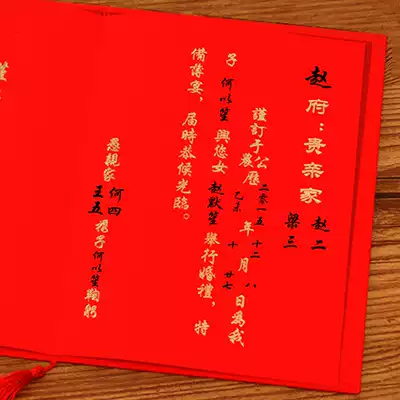 赵府：贵亲家 赵二 梁三
謹訂于公農曆二零一五乙未年十二十月八廿七日為我
子何以笙與您女赵默笙舉行婚禮，特
備薄宴，届時恭候光臨。
愚親家 何四 王五 携子何以笙鞠躬